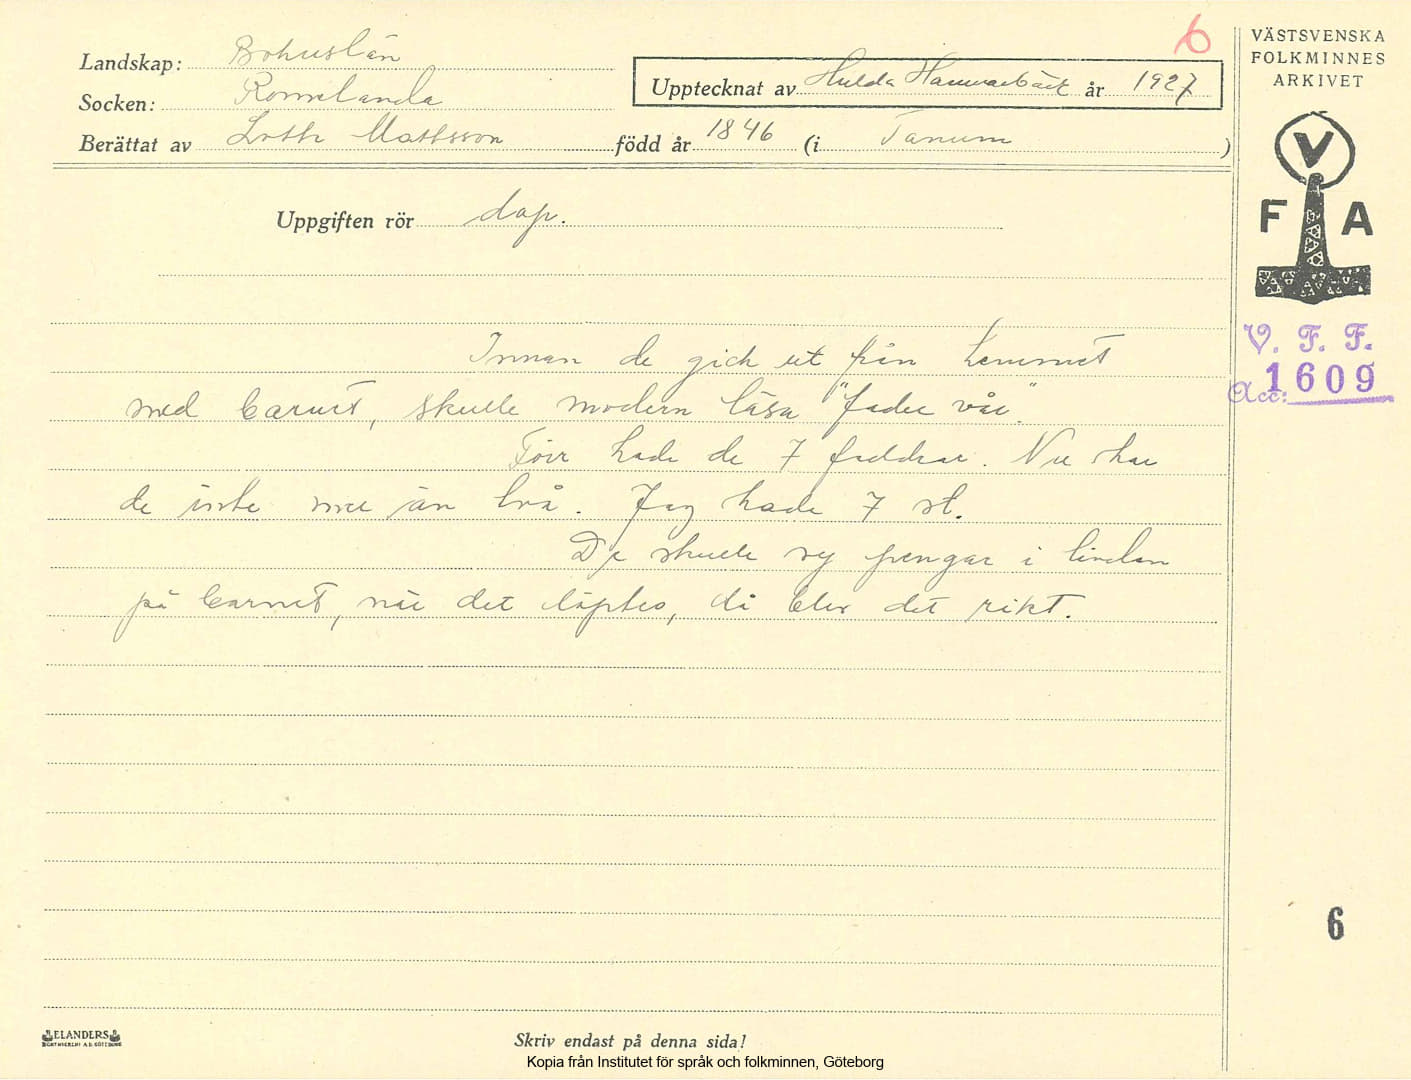 6
VÄSTSVENSKA
FOLKMINNES
ARKIVET
Landskap: Bohuslän
Socken: Romelanda
Upptecknat av Hulda Hammarbäck år 1927
Berättat av Loth Mattsson född år 1846 (i Tanum)
V
F A
Uppgiften rör dop.
V. F. F.
Acc: 1609
Innan de gick ut från hemmet
med barnet, skulle modern läsa "fader vår".
Förr hade de 7 faddrar. Nu har
de inte mer än två. Jag hade 7 st.
De skulle sy pengar i lindan
på barnet, när det döptes, då blev det rikt.
6
ELANDERS
Skriv endast på denna sida!
Kopia från Institutet för språk och folkminnen, Göteborg